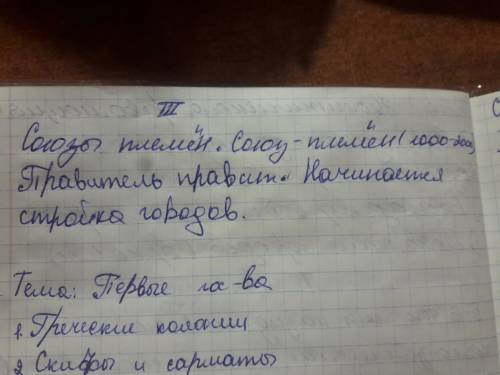 III
Союзы племён. Союз-племён (1000-200)
Правитель правит. Начинается
стройка городов.
Тема: Первые гос-ва
1. Греческие колонии
2. Скифы и сарматы